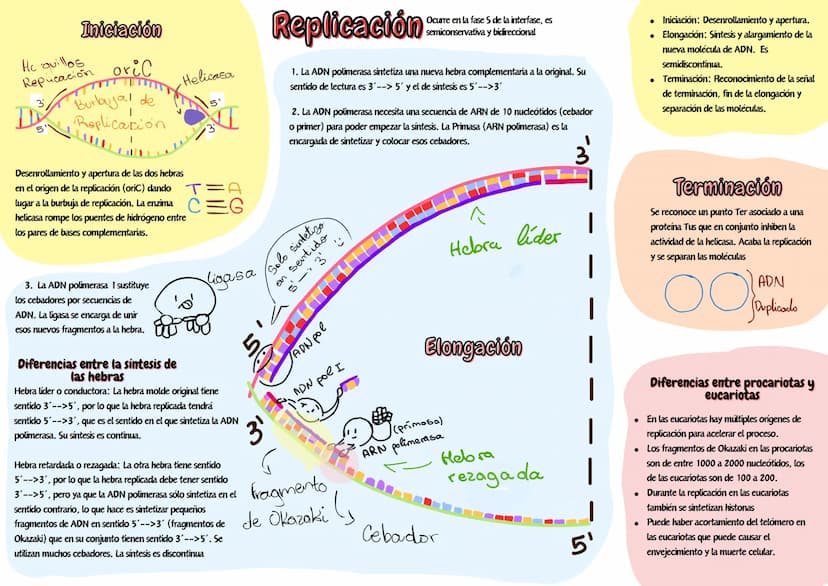 Iniciación
Horquillas
Replicación
oriC
Helicasa
3'
5'
Burbuja de
Replicación
5'
3'
Desenrollamiento y apertura de las dos hebras
en el origen de la replicación (oriC) dando
lugar a la burbuja de replicación. La enzima
helicasa rompe los puentes de hidrógeno entre
los pares de bases complementarias.
T = A
C ≡ G
Replicación
Ocurre en la fase S de la interfase, es
semiconservativa y bidireccional
1. La ADN polimerasa sintetiza una nueva hebra complementaria a la original. Su
sentido de lectura es 3´--> 5´ y el de síntesis es 5´-->3´
2. La ADN polimerasa necesita una secuencia de ARN de 10 nucleótidos (cebador
o primer) para poder empezar la síntesis. La Primasa (ARN polimerasa) es la
encargada de sintetizar y colocar esos cebadores.
Iniciación: Desenrollamiento y apertura.
Elongación: Síntesis y alargamiento de la
nueva molécula de ADN. Es
semidiscontinua.
Terminación: Reconocimiento de la señal
de terminación, fin de la elongación y
separación de las moléculas.
3. La ADN polimerasa I sustituye
los cebadores por secuencias de
ADN. La ligasa se encarga de unir
esos nuevos fragmentos a la hebra.
ligasa
Solo sintetizo
en sentido
5' → 3'
3'
Hebra líder
5'
ADN pol
Elongación
ADN pol I
3'
(primasa)
ARN polimerasa
Hebra
rezagada
Fragmento
de Okazaki
Cebador
5'
Diferencias entre la síntesis de
las hebras
Hebra líder o conductora: La hebra molde original tiene
sentido 3´-->5´, por lo que la hebra replicada tendrá
sentido 5´-->3´, que es el sentido en el que sintetiza la ADN
polimerasa. Su síntesis es continua.
Hebra retardada o rezagada: La otra hebra tiene sentido
5´-->3´, por lo que la hebra replicada debe tener sentido
3´-->5´, pero ya que la ADN polimerasa sólo sintetiza en el
sentido contrario, lo que hace es sintetizar pequeños
fragmentos de ADN en sentido 5´-->3´ (fragmentos de
Okazaki) que en su conjunto tienen sentido 3´-->5´. Se
utilizan muchos cebadores. La síntesis es discontinua
Terminación
Se reconoce un punto Ter asociado a una
proteína Tus que en conjunto inhiben la
actividad de la helicasa. Acaba la replicación
y se separan las moléculas
ADN
Duplicado
Diferencias entre procariotas y
eucariotas
En las eucariotas hay múltiples orígenes de
replicación para acelerar el proceso.
Los fragmentos de Okazaki en las procariotas
son de entre 1000 a 2000 nucleótidos, los
de las eucariotas son de 100 a 200.
Durante la replicación en las eucariotas
también se sintetizan histonas
Puede haber acortamiento del telómero en
las eucariotas que puede causar el
envejecimiento y la muerte celular.